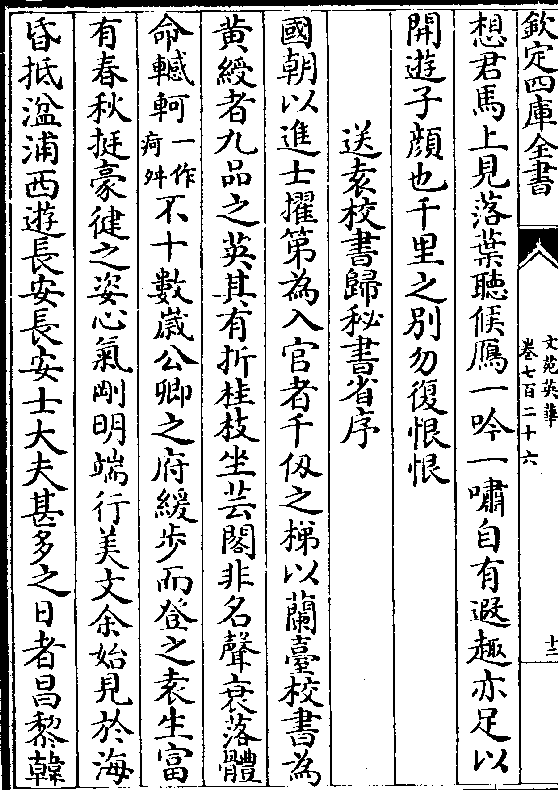 欽定四庫全書
文苑英華
卷七百二十六
十三
想君馬上見落葉聽候鴈一吟一嘯自有遐趣亦足以
開遊子顔也千里之别勿復恨恨
送袁校書歸秘書省序
國朝以進士擢第為入官者千仭之梯以蘭臺校書為
黄綬者九品之英其有折桂枝坐芸閣非名聲衰落體
命轗軻一作疴舛不十數嵗公卿之府緩步而登之袁生富
有春秋挺豪健之姿心氣剛明端行美文余始見於海
昏抵湓浦西遊長安長安士大夫甚多之日者昌黎韓